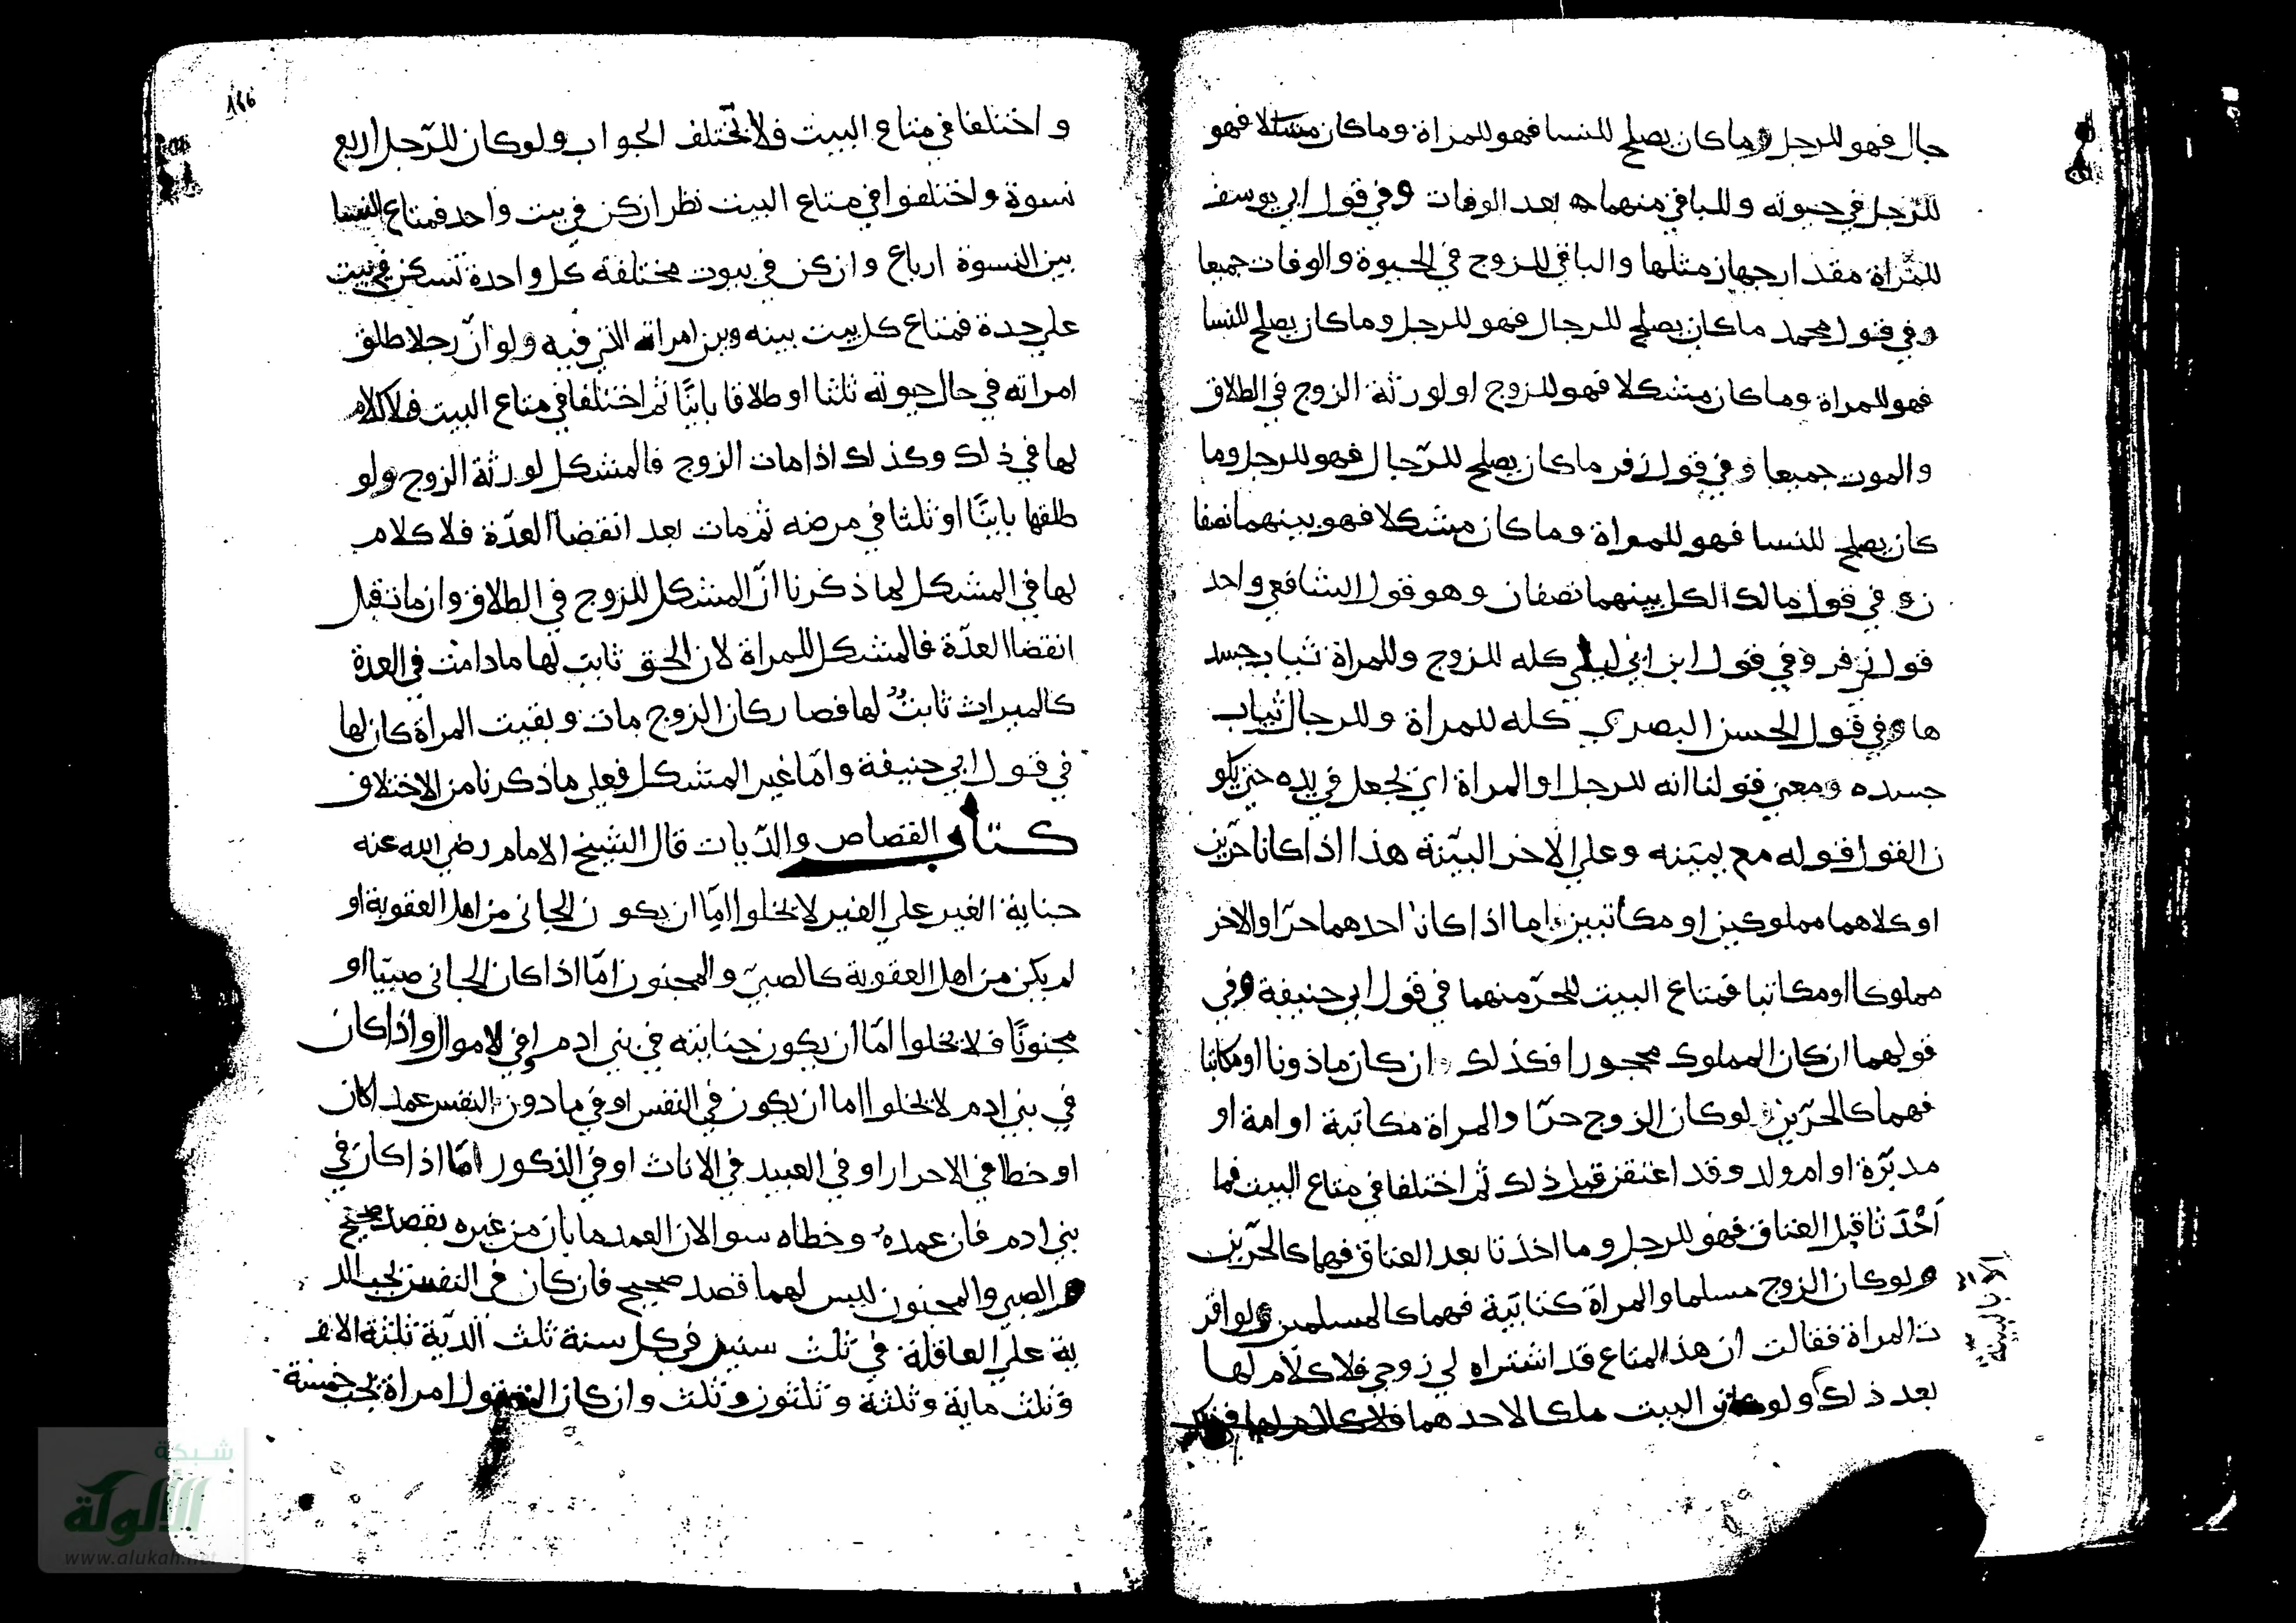 جال فهو للرجل وما كان يصلح للنسا فهو للمراة وما كان مشكلا فهو
للرّجل في حيوته وللباقي منهما بعد الوفات وفي قول ابي يوسف
للمراة مقدار جهاز مثلها والباقي للزوج في الحيوة والوفات جميعا
وفي قول محمد ما كان يصلح للرجال فهو للرجل وما كان يصلح للنسا
فهو للمراة وما كان مشكلا فهو للزوج او لورثة الزوج في الطلاق
والموت جميعا وفي قول زفر ما كان يصلح للرّجال فهو للرجل وما
كان يصلح للنسا فهو للمراة وما كان مشكلا فهو بينهما نصفا
ن وفي قول مالك الكل بينهما نصفان وهو قول الشافعي واحد
قولي زفر وفي قول ابن ابي ليلي كله للزوج وللمراة ثياب جسد
ها وفي قول الحسن البصري كله للمراة وللرجال ثياب
جسده ومعني قولنا انه للرجل او المراة اي يجعل في يده حتي يكو
ن القول قوله مع يمينه وعلي الاخر البيّنة هذا اذا كانا حرّين
او كلاهما مملوكين او مكاتبين اما اذا كان احدهما حرّا والاخر
مملوكا او مكاتبا فمتاع البيت للحرّ منهما في قول ابي حنيفة وفي
قولهما ان كان المملوك محجورا فكذلك ان كان ماذونا او مكاتبا
فهما كالحرّين لو كان الزوج حرّا والمراة مكاتبة او امة او
مدبّرة او ام ولد وقد اعتقت قبل ذلك ثم اختلفا في متاع البيت فما
اخذتا قبل العتاق فهو للرجل وما اخذتا بعد العتاق فهما كالحرّين
ولو كان الزوج مسلما والمراة كتابية فهما كالمسلمين ولو اقر
ت المراة فقالت ان هذا المتاع قد اشتراه لي زوجي فلا كلام لها
بعد ذلك ولو كان البيت ملكا لاحدهما
الا بالبينة
166
واختلفا في متاع البيت فلا تختلف الجواب ولو كان للرّجل اربع
نسوة واختلفوا في متاع البيت نظر ان كن في بيت واحد فمتاع النسا
بين النسوة ارباع وان كن في بيوت مختلفة كل واحدة تسكن في بيت
علي حدة فمتاع كل بيت بينه وبين امراته التي فيه ولو انّ رجلا طلق
امراته في حال حيوته ثلثا او طلاقا باينًا ثم اختلفا في متاع البيت فلا كلام
لها في ذلك وكذلك اذا مات الزوج فالمشكل لورثة الزوج ولو
طلقها باينًا او ثلثا في مرضه ثم مات بعد انقضا العدّة فلا كلام
لها في المشكل لما ذكرنا انّ المشكل للزوج في الطلاق وان مات قبل
انقضا العدّة فالمشكل للمراة لان الحق ثابت لها ما دامت في العدة
كالميراث ثابتٌ لها فصار كان الزوج مات وبقيت المراة كان لها
في قول ابي حنيفة وامّا غير المشكل فعلي ما ذكرنا من الاختلاف
كتاب القصاص والدّيات قال الشيخ الامام رضي الله عنه
جناية الغير علي الغير لا يخلوا امّا ان يكون الجاني من اهل العقوبة او
لم يكن من اهل العقوبة كالصبيّ والمجنون امّا اذا كان الجاني صبيّا او
مجنونًا فلا يخلوا امّا ان يكون جنايته في بني ادم او في الاموال واذا كان
في بني ادم لا يخلوا اما ان يكون في النفس او في ما دون النفس عمدا كان
او خطا في الاحرار او في العبيد في الاناث او في الذكور امّا اذا كان في
بني ادم فان عمده وخطاه سوا لان العمد ما بان من غيره بقصد صحيح
والصبي والمجنون ليس لهما قصد صحيح فان كان في النفس يجب الد
ية علي العاقلة في ثلث سنين في كل سنة ثلث الدّية ثلثة الاف
وثلث ماية وثلثة وثلثون وثلث وان كان المقتول امراة يجب خمسة
شبكة
الألوكة
www.alukah.net